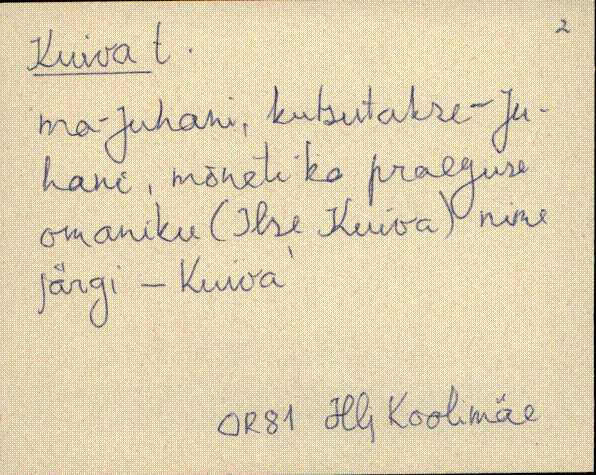 2
Kuiva t.
ma-Juhani, kutsutakse - Ju-
hani, mõneti ka praeguse
omaniku (Ilse Kuiva) nime
järgi - Kuiva
OR81 Koolimäe